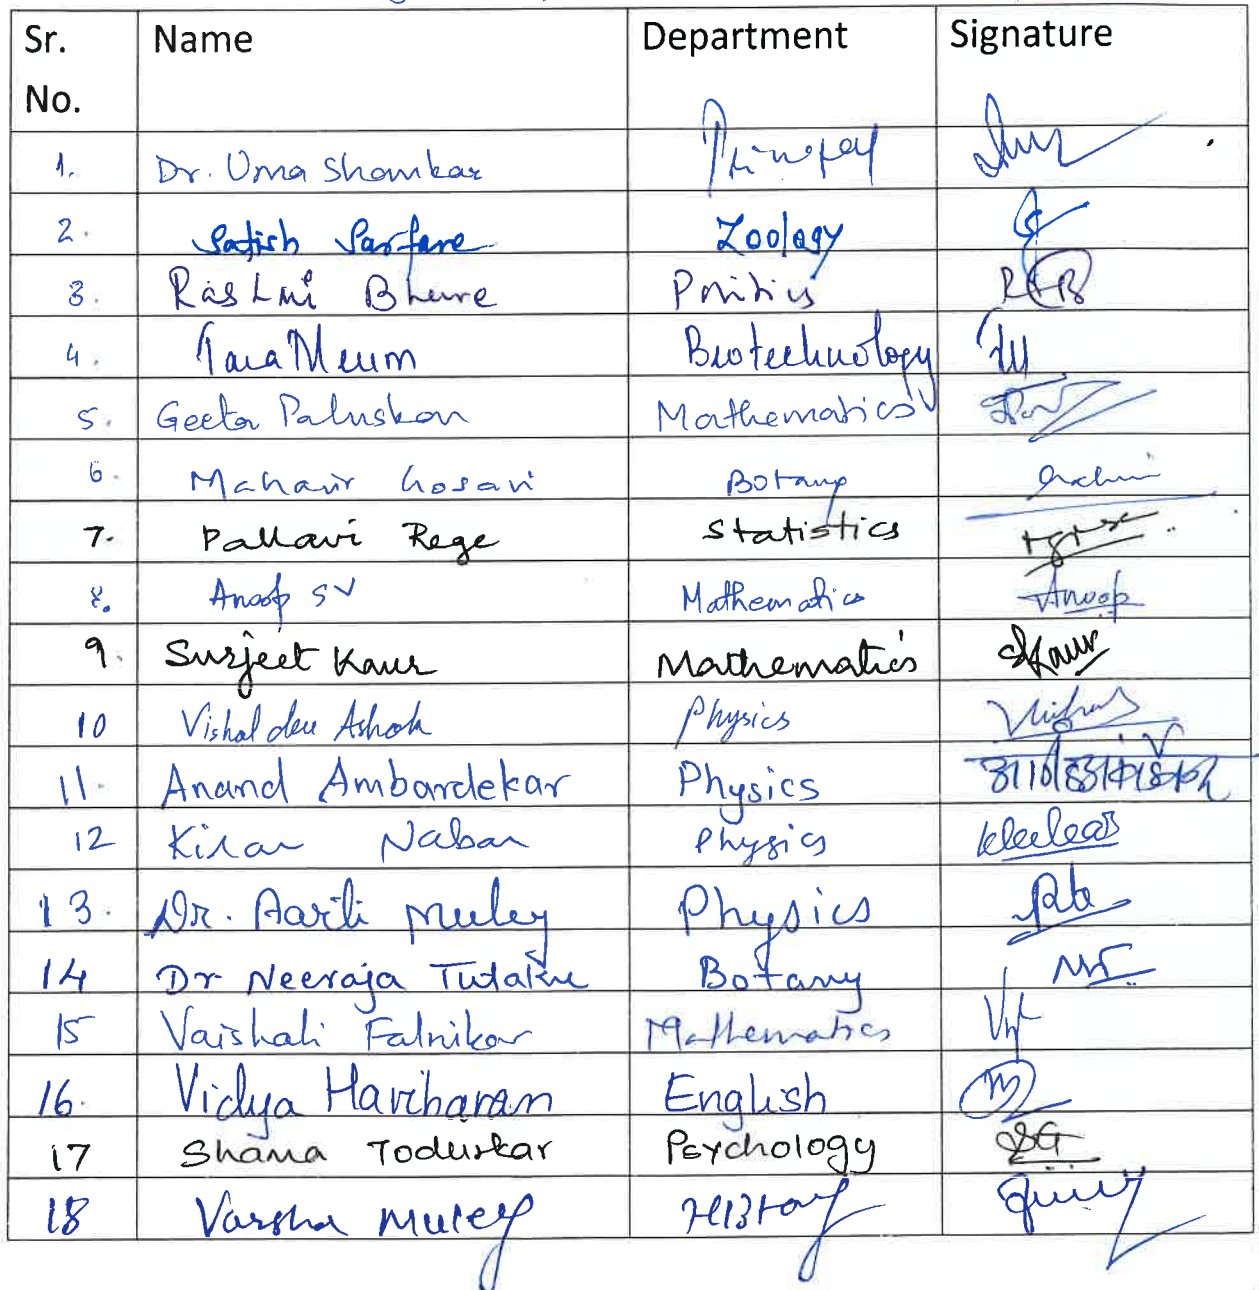 Sr. No. Name Department Signature
1. Dr. Uma Shankar Principal
2. Satish Sarfare Zoology
3. Rashmi Bhure Politics
4. Tara Menon Biotechnology
5. Geeta Paluskar Mathematics
6. Mahavir Gosavi Botany
7. Pallavi Rege Statistics
8. Anoop SV Mathematics Anoop
9. Surjeet Kaur Mathematics SKaur
10 Vishal dev Ashok Physics
11. Anand Ambardekar Physics
12 Kiran Naban Physics
13. Dr. Aarti Muley Physics
14 Dr Neeraja Tutakne Botany
15 Vaishali Falnikar Mathematics
16. Vidya Hariharan English
17 Shama Toduskar Psychology
18 Varsha Muley History